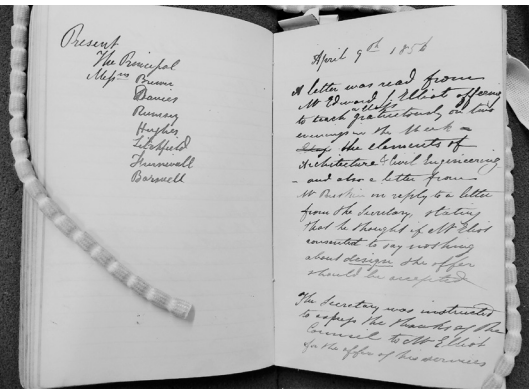 Present
The Principal
Messrs Brewer
Davies
Rumsey
Hughes
Litchfield
Furnivall
Barswell
April 9th 1856
A letter was read from
Mr Edward J Elliot offering
to teach a class gratuitously on two
evenings in the Week –
the elements of
Architecture & Civil Engineering
– and also a letter from
Mr Ruskin in reply to a letter
from the Secretary, stating
that he thought if Mr Elliot
consented to say nothing
about design the offer
should be accepted
The Secretary was instructed
to express the thanks of the
Council to Mr Elliot
for the offer of his services